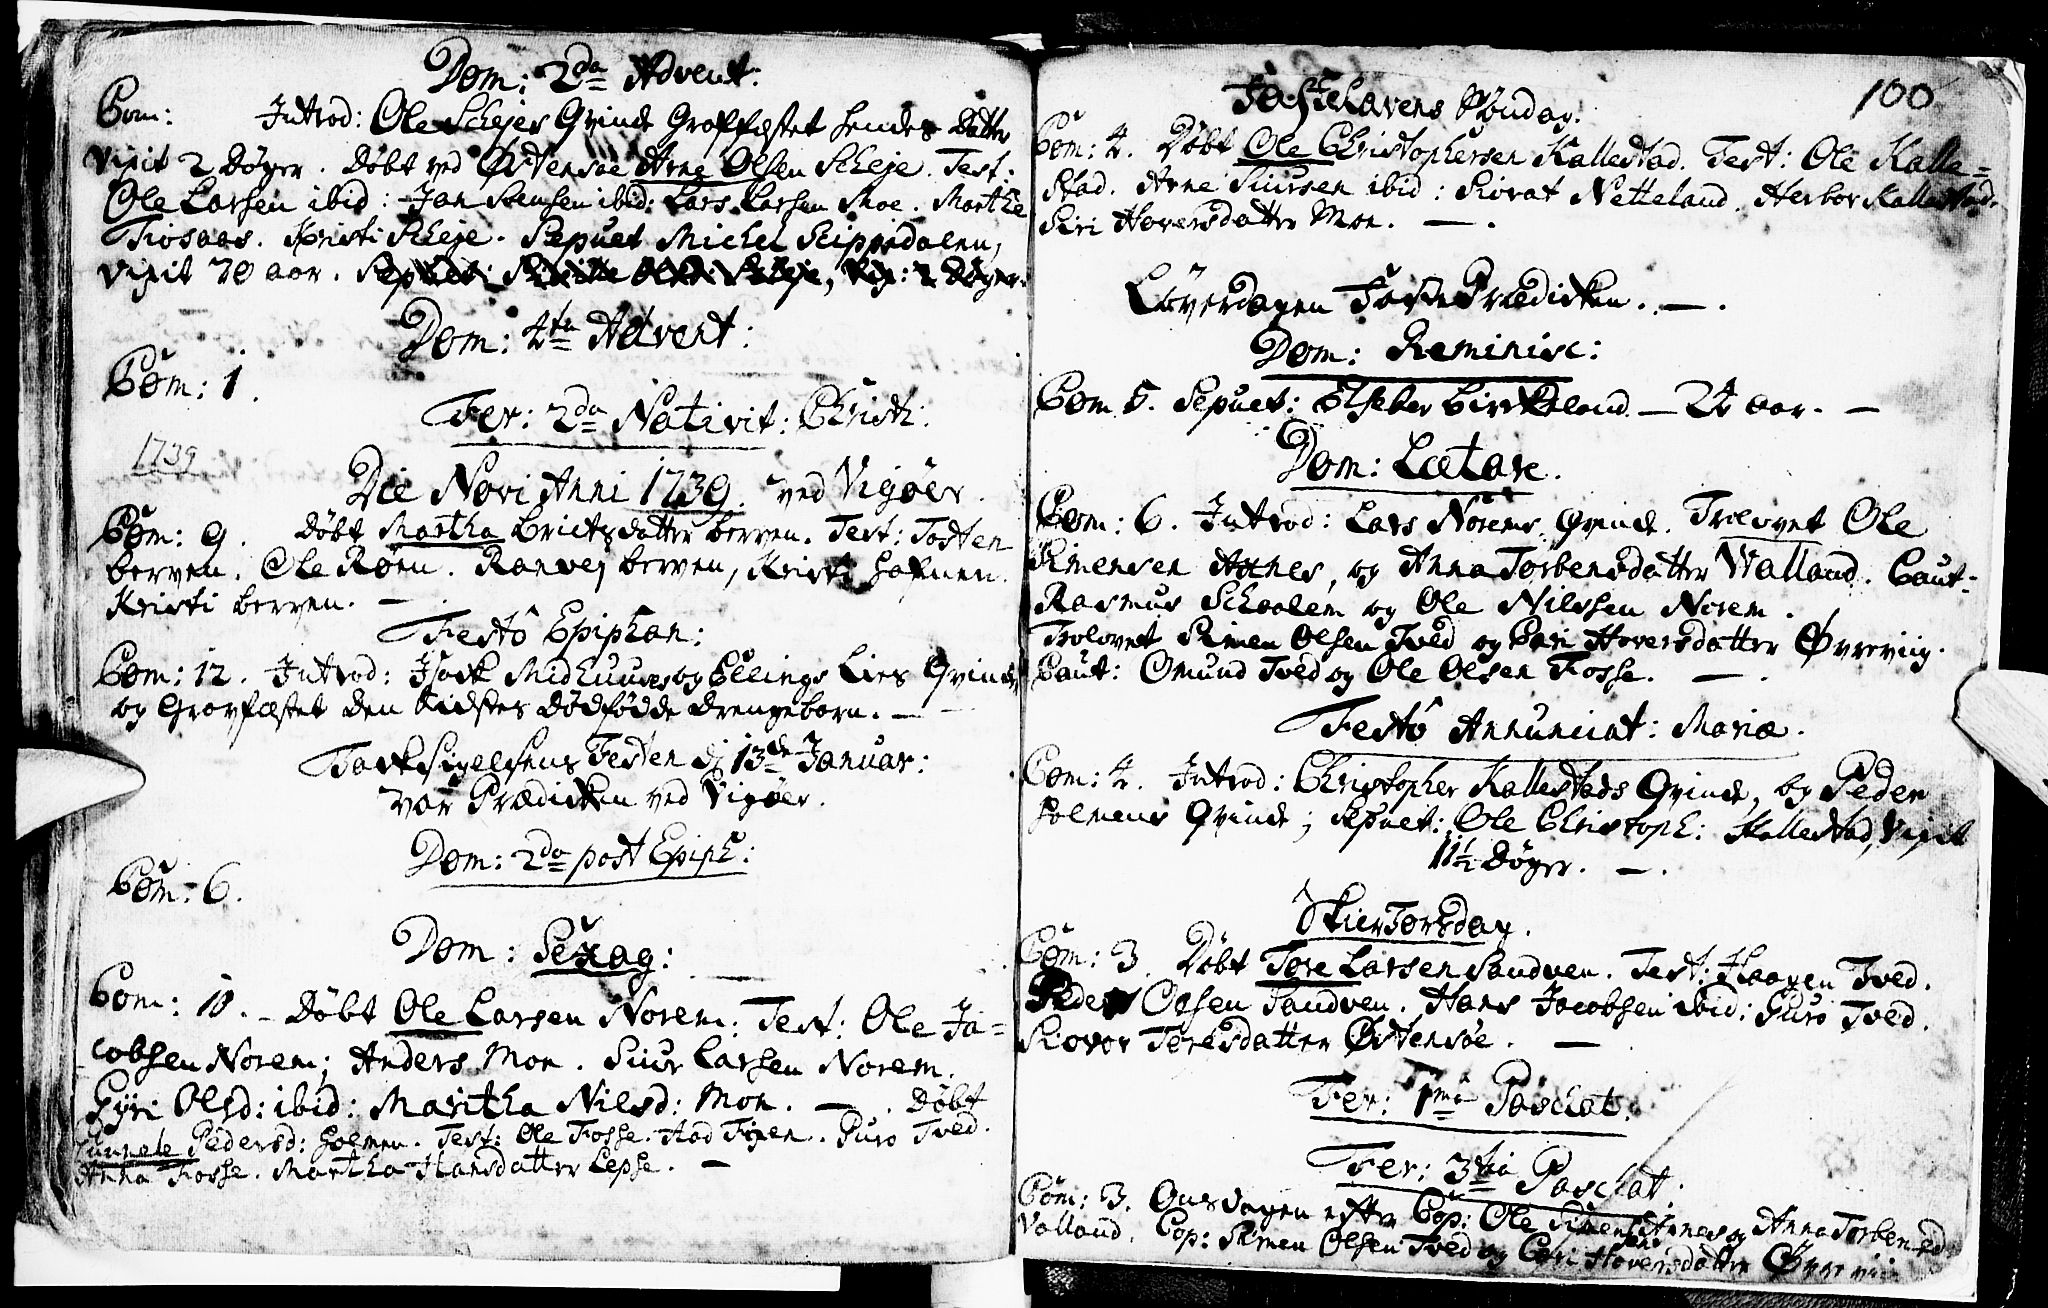 Dom: 2da Advent:
Com: Introd: Ole Schejes Qvinde Graffæstet hendes Datter
vixit 2 Døger. Døbt ved Østensøe Arne Olsen Scheje. Test:
Ole Larsen ibid: Jon ibid: Lars Larsen Moe. Marthe
Fiosaas. Kristi Scheje. Sepult Michel Scippedalen,
vixit 70 aar.
Dom: 4ta Advent:
Com: 1.
Fer: 2da Nativit: Christi:
1739
Die Novi Anni 1739. ved Vigøer.
Com: 9. Døbt Martha Brictsdatter Berven. Test: Tosten
Berven. Ole Røen. Ranvej Berven, Kristi
Kristi Berven. —
Festo Epiphan:
Com: 12. Introd: Isach og Ellings Lies Qvinde,
og Gravfæstet den sidstes Dødfødde Drengebarn. —
Tacksigelsens Festen d: 13de Januar:
var Prædicken ved Vigøer.
Dom: 2da post Epiph:
Com: 6.
Dom: Sexag:
Com: 10. – Døbt Ole Larsen Norem: Test: Ole Ja-
cobsen Norem; Anders Moe. Siur Larsen Norem.
Gyri Olsd: ibid: Maritha Nilsd: Moe. — . Døbt
Pedersd: Holmen. Test: Ole Fosse. Aad . Guro Tved.
Anna Fosse. Martha Hansdatter Lepse. —
100
Fastelavens Søndag:
Com: 4. Døbt Ole Christophersen Kallestad. Test: Ole Kalle-
stad. Arne Siursen ibid: Siovat Netteland. Herbor Kallestad.
Siri Haversdatter Moe. — .
Løverdagen Faste Prædicken. — .
Dom: Reminisc:
Com 5. Sepult: Elseber Birkeland — 24 aar. —
Dom: Lætare.
Com: 6. Introd: Lars Norems Qvinde. Trolovet Ole
Simensen Aanes, og Anna Torbensdatter Walland. Caut:
Rasmus og Ole Nilssen Norem.
Trolovet Simen Olsen Tved og Cari Haversdatter Øvreviig.
Caut: Omund Tved og Ole Olsen Fosse. — .
Festo Annunciat: Mariæ.
Com: 4. Introd: Christopher Kallestads Qvinde, og Peder
Holmens Qvinde; Sepult: Ole Christoph: Kallestad, vixit
11½ Døger. — .
Skiertorsdag.
Com: 3. Døbt Tore Larsen Sandven. Test: Haagen Tved.
Peder Olsen Sandven. Hans Jacobsen ibid: Guro Tved.
Siovor Toresdatter Østensøe. —
Fer: 1ma Paschat:
Fer: 3tia Paschat:
Com: 3. Onsdagen efter Cop: Ole Simens: Aanes og Anna Torbensd:
Valland. Cop: Simen Olsen Tved og Cari Haversdatter Øvreviig